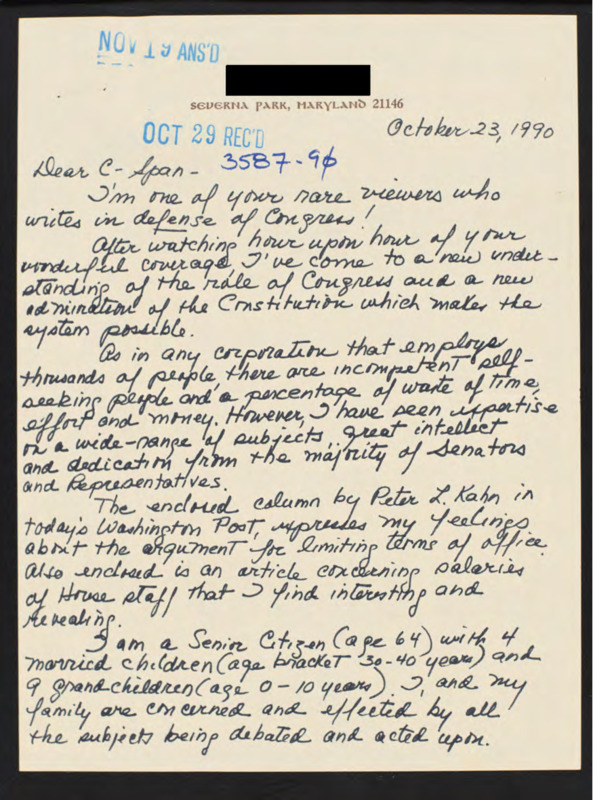 NOV 19 ANS'D
SEVERNA PARK, MARYLAND 21146
October 23, 1990
OCT 29 REC'D
3587-90
Dear C-Span-
I'm one of your rare viewers who
writes in defense of Congress!
After watching hour upon hour of your
wonderful coverage I've come to a new under-
standing of the role of Congress and a new
admiration of the Constitution which makes the
system possible.
As in any corporation that employs
thousands of people, there are incompetent self-
seeking people and a percentage of waste of time,
effort and money. However, I have seen expertise
on a wide-range of subjects, great intellect
and dedication from the majority of Senators
and Representatives.
The enclosed column by Peter L. Kahn in
today's Washington Post, expresses my feelings
about the argument for limiting terms of office.
Also enclosed is an article concerning salaries
of House staff that I find interesting and
revealing.
I am a Senior Citizen (age 64) with 4
married children (age bracket 30-40 years) and
9 grandchildren (age 0-10 years). I, and my
family are concerned and effected by all
the subjects being debated and acted upon.